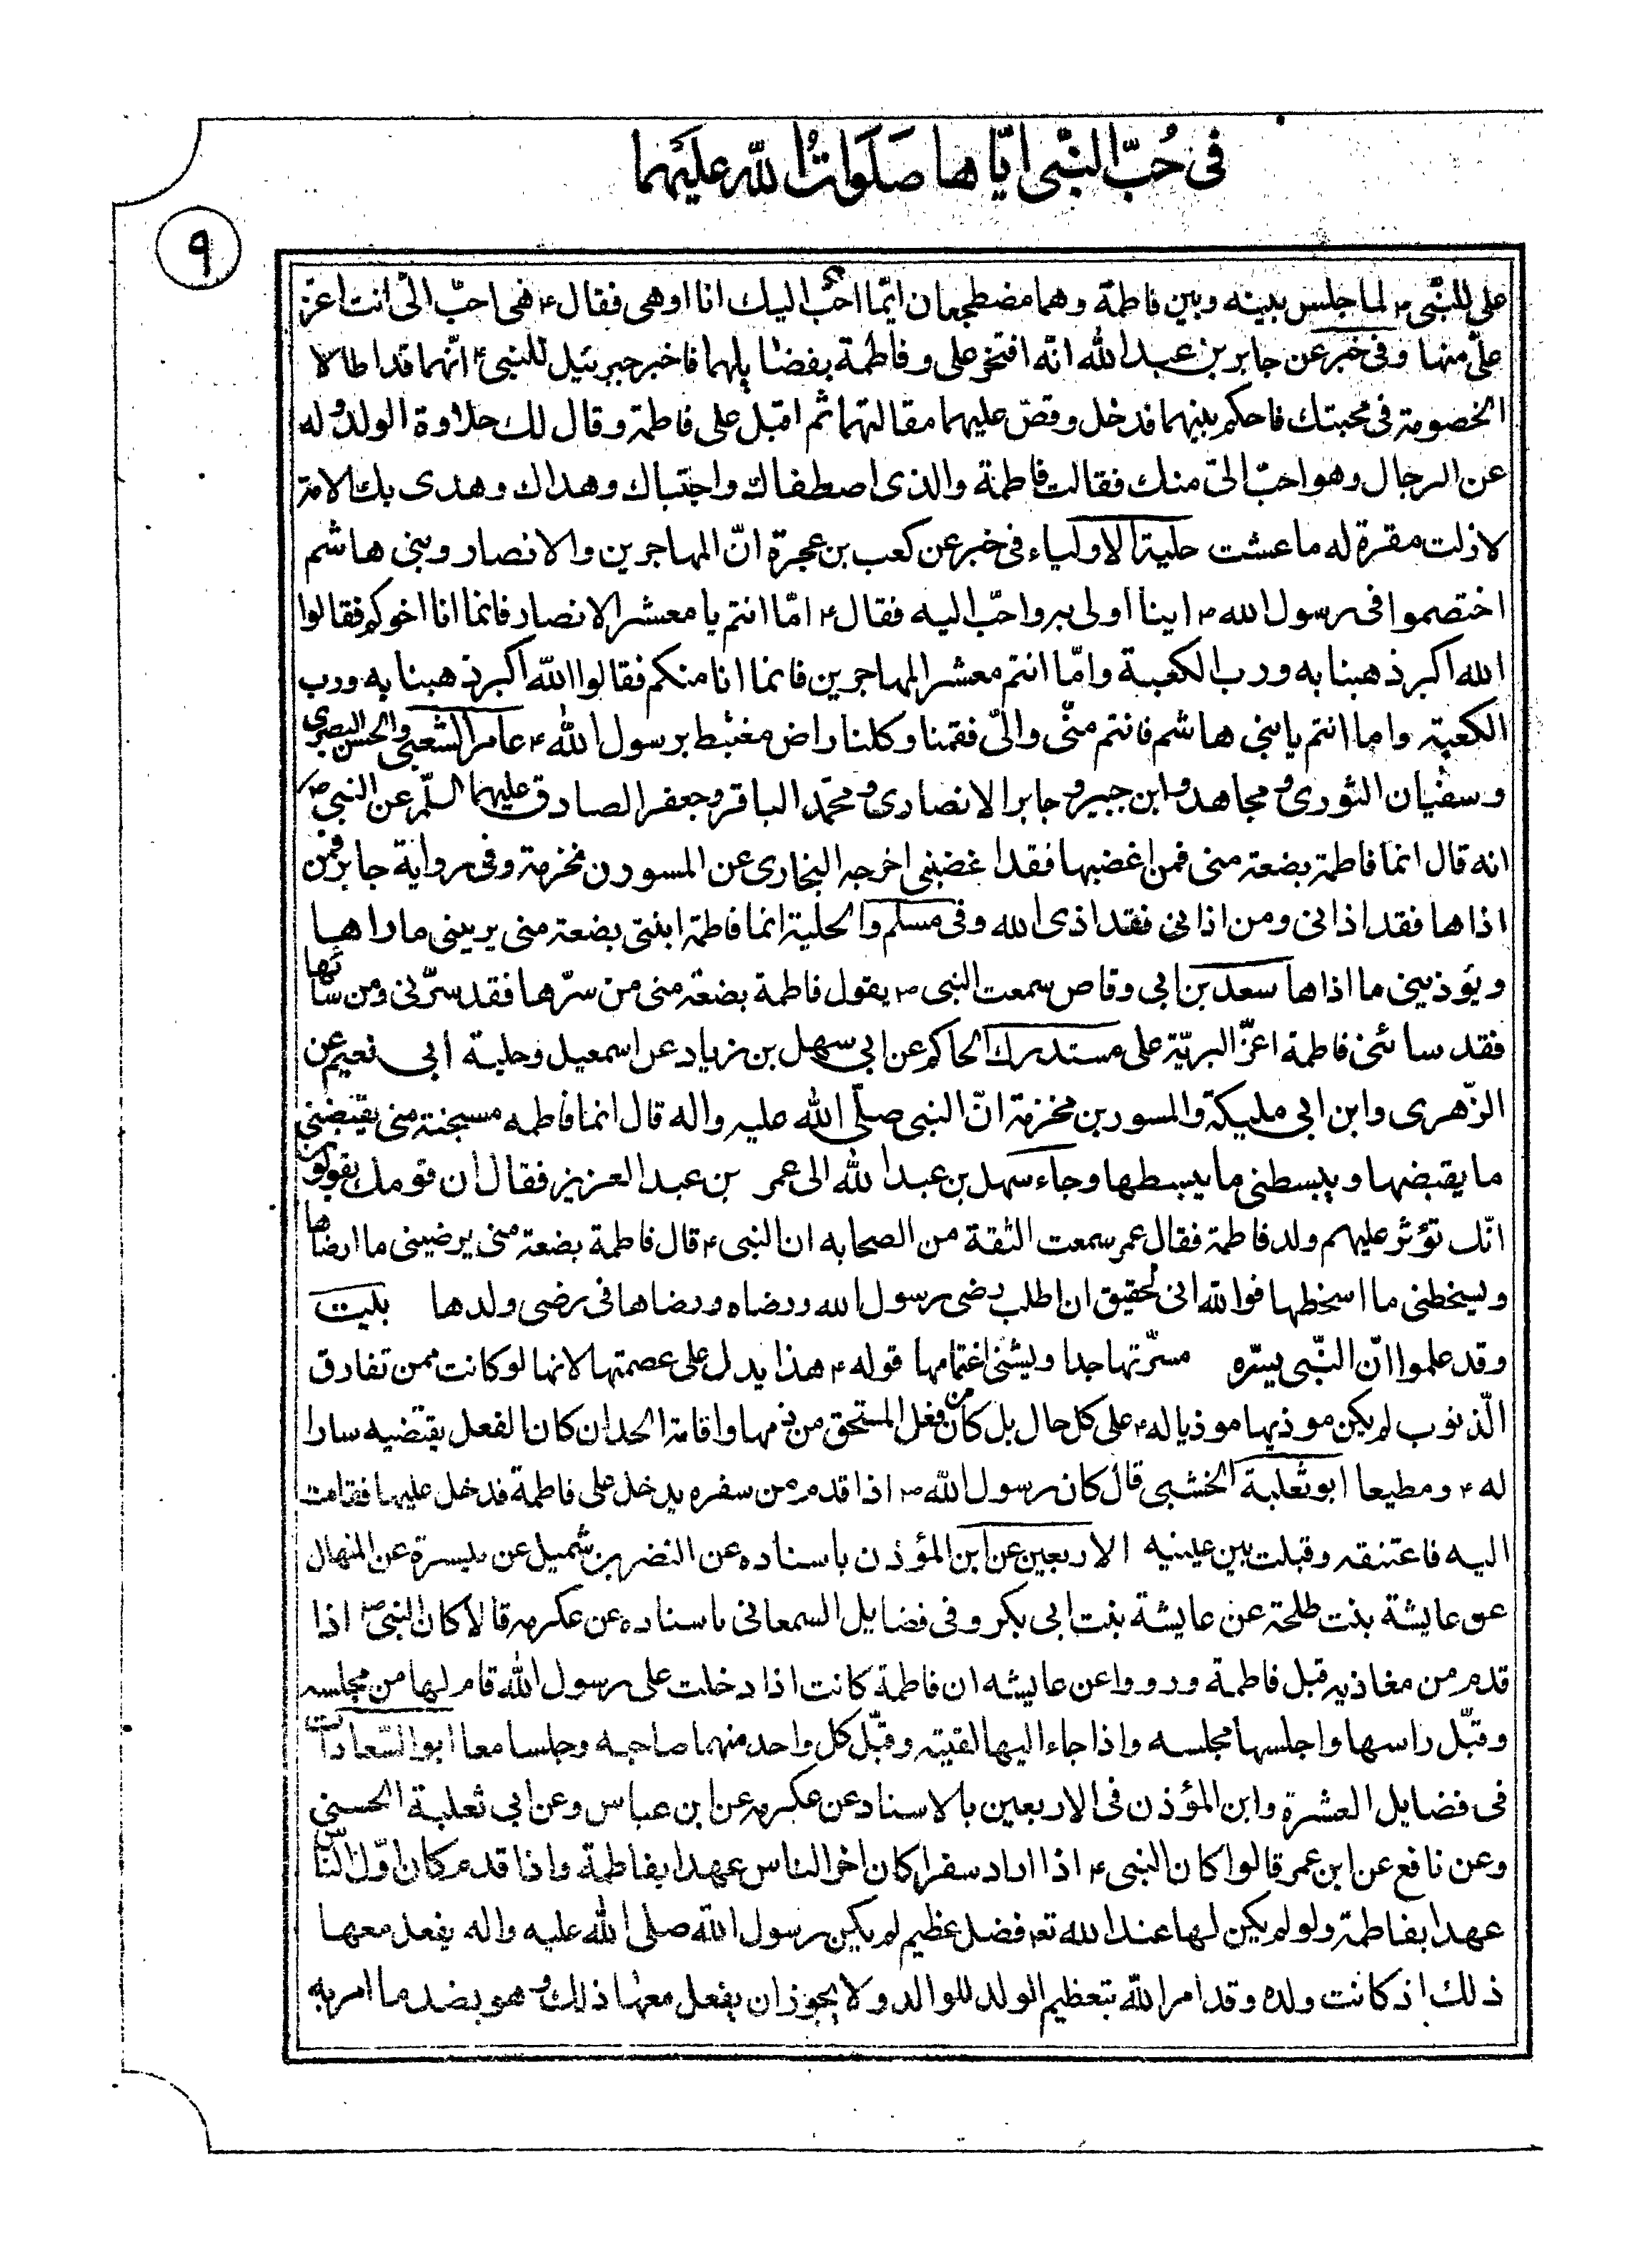 فى حُبّ النّبى ايّاها صَلَوَاتُ اللّه عليَهما
٩
على للنّبى ۴ لما جلس بينه وبين فاطمة وهما مضطجعان ايّما احبّ اليك انا اوهى فقال ۴ هى احبّ الىّ انت اعزّ
علىّ منها وفى خبر عن جابر بن عبد الله انّه افتخر على وفاطمة بفضايلهما فاخبر جبرئيل للنبى ۴ انّهما قد اطالا
الخصومة فى محبتك فاحكم بينهما فدخل وقصّ عليهما مقالتهما ثم اقبل على فاطمة وقال لك حلاوة الولد وله
عن الرجال وهو احبّ الىّ منك فقالت فاطمة والذى اصطفاك واجتباك وهداك وهدى بك الامة
لازلت مقرة له ما عشت حلية الاولياء فى خبر عن كعب بن عجرة انّ المهاجرين والانصار وبنى هاشم
اختصموا فى رسول الله ۴ اينا اولى به واحبّ اليه فقال ۴ امّا انتم يا معشر الانصار فانما انا اخوكم فقالوا
الله اكبر ذهبنا به ورب الكعبة وامّا انتم معشر المهاجرين فانما انا منكم فقالوا اللّه اكبر ذهبنا به ورب
الكعبة واما انتم يا بنى هاشم فانتم منّى والىّ فقمنا وكلنا راض مغتبط برسول الله ۴ عامر الشعبى والحسن البصرى
وسفيان الثورى ومجاهد وابن جبير وجابر الانصارى ومحمّد الباقر وجعفر الصادق عليهما السلّم عن النبى ص
انه قال انما فاطمة بضعة منى فمن اغضبها فقد اغضبنى اخرجه البخارى عن المسور بن مخرمة وفى رواية جابر فمن
اذاها فقد اذانى ومن اذانى فقد اذى الله وفى مسلم والحلية انما فاطمة ابنتى بضعة منى يريبنى ما رابها
ويؤذينى ما اذاها سعد بن ابى وقاص سمعت النبى ۴ يقول فاطمة بضعة منى من سرّها فقد سرّنى ومن سائها
فقد سائنى فاطمة اعزّ البريّة على مستدرك الحاكم عن ابى سهل بن زياد عن اسمعيل وحلية ابى نعيم عن
الزّهرى وابن ابى مليكة والمسور بن مخرمة انّ النبى صلّى الله عليه واله قال انما فاطمه مسجنة منى يقبضنى
ما يقبضها ويبسطنى ما يبسطها وجاء سهل بن عبد الله الى عمر بن عبد العزيز فقال ان قومك يقولون
انّك تؤثر عليهم ولد فاطمة فقال عمر سمعت الثقة من الصحابه ان النبى ۴ قال فاطمة بضعة منى يرضينى ما ارضاها
ويسخطنى ما اسخطها فوالله انى لحقيق ان اطلب رضى رسول الله ورضاه ورضاها فى رضى ولدها بليت
وقد علموا انّ النّبى يسرّه مسرّتها جدا ويشنى اغتمامها قوله ۴ هذا يدل على عصمتها لانها لوكانت ممن تفارق
الّذنوب لم يكن موذيها موذيا له ۴ على كل حال بل كان من فعل المستحق من ذمها واقامة الحد ان كان الفعل يقتضيه سارا
له ۴ ومطيعا ابو ثعلبة الخشبى قال كان رسول الله ۴ اذا قدم من سفره يدخل على فاطمة فدخل عليها فقامت
اليه فاعتنقه وقبلت بين عينيه الاربعين عن ابن المؤذن باسناده عن النضر بن شميل عن ميسرة عن المنهال
عن عايشة بنت طلحة عن عايشة بنت ابى بكر وفى فضايل السمعانى باسناده عن عكرمه قالا كان النبى ص اذا
قدم من مغازيه قبل فاطمة ورووا عن عايشه ان فاطمة كانت اذا دخلت على رسول الله قام لها من مجلسه
وقبّل راسها واجلسها مجلسه واذا جاء اليها لقيته وقبّل كل واحد منهما صاحبه وجلسا معا ابو السّعادات
فى فضايل العشرة وابن المؤذن فى الاربعين بالاسناد عن عكرمه عن ابن عباس وعن ابى ثعلبة الحسينى
وعن نافع عن ابن عمر قالوا كان النبى ۴ اذا اراد سفرا كان اخر الناس عهدا بفاطمة واذا قدم كان اوّل النّاس
عهدا بفاطمة ولو لم يكن لها عند الله تع فضل عظيم لم يكن رسول اللّه صلى الله عليه واله يفعل معها
ذلك اذ كانت ولده وقد امر اللّه بتعظيم الولد للوالد ولا يجوز ان يفعل معها ذلك وهو بضد ما امر به